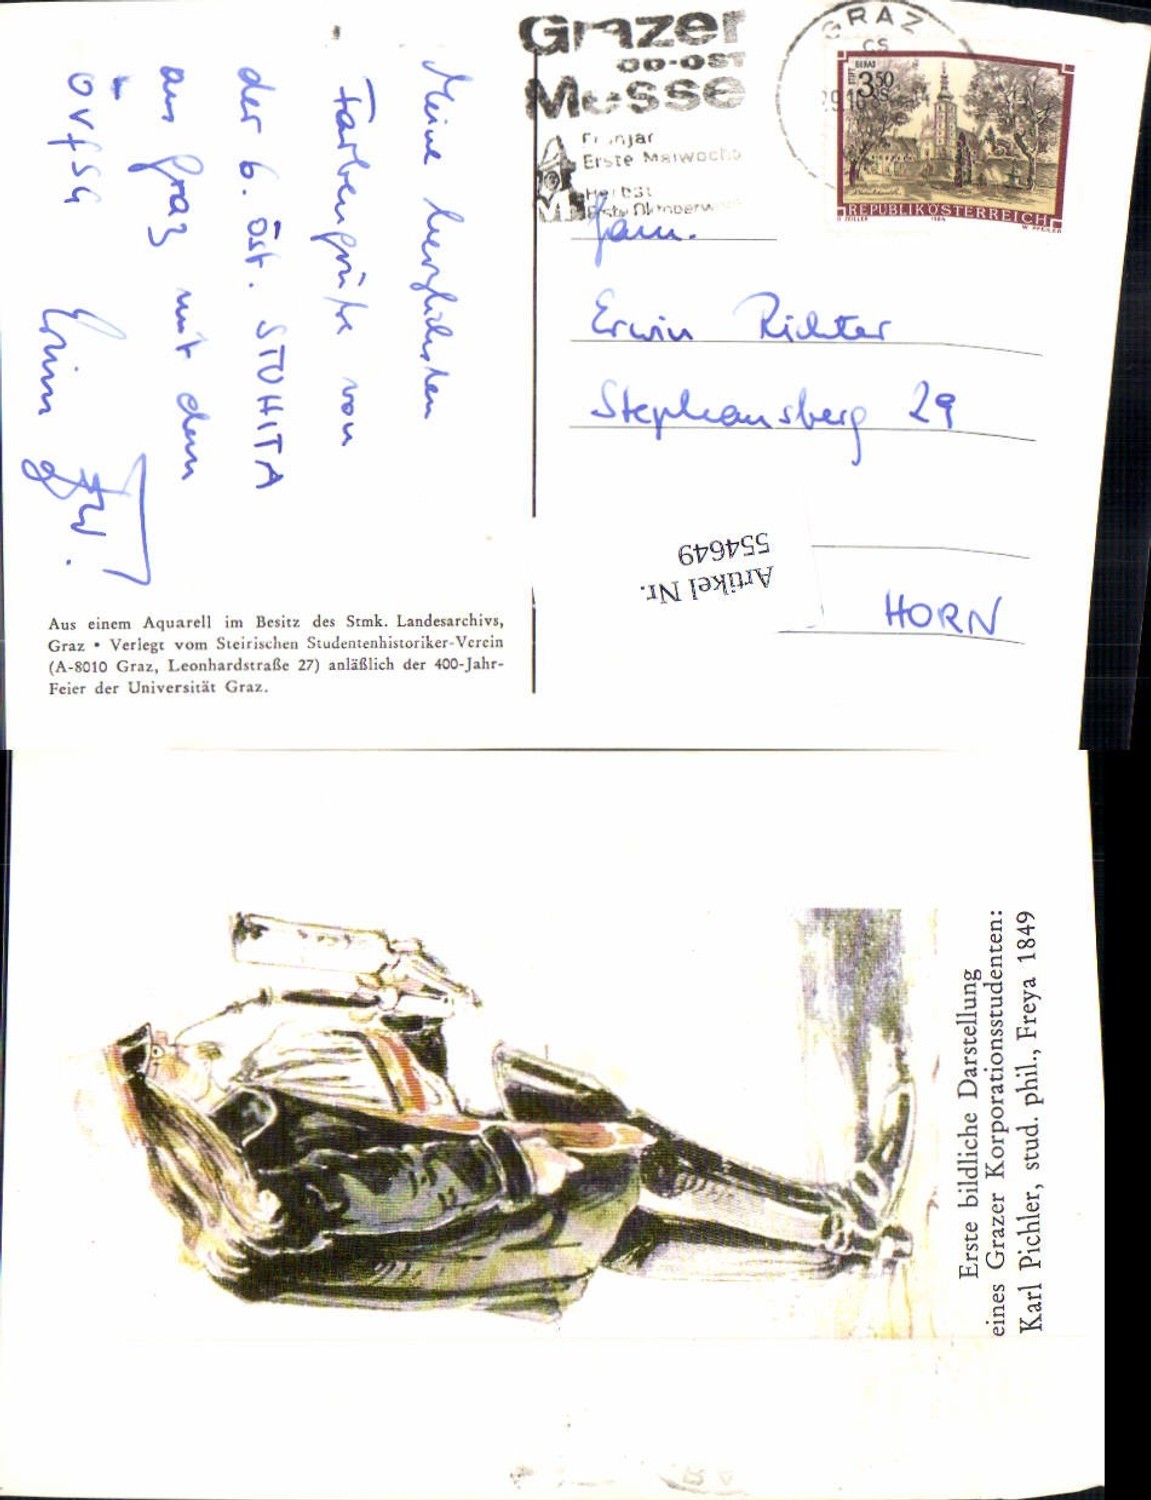 Grazer
Messe
Erste Maiwoche
Herbst
GRAZ
3.50
REPUBLIK ÖSTERREICH
Meine herzlichsten
Farbengrüße von
der 6. öst. STUHITA
aus Graz mit dem
ÖVfStG
Fam.
Erwin Richter
Stephansberg 29
HORN
Artikel Nr.
554649
Aus einem Aquarell im Besitz des Stmk. Landesarchivs,
Graz • Verlegt vom Steirischen Studentenhistoriker-Verein
(A-8010 Graz, Leonhardstraße 27) anläßlich der 400-Jahr-
Feier der Universität Graz.
Erste bildliche Darstellung
eines Grazer Korporationsstudenten:
Karl Pichler, stud. phil., Freya 1849